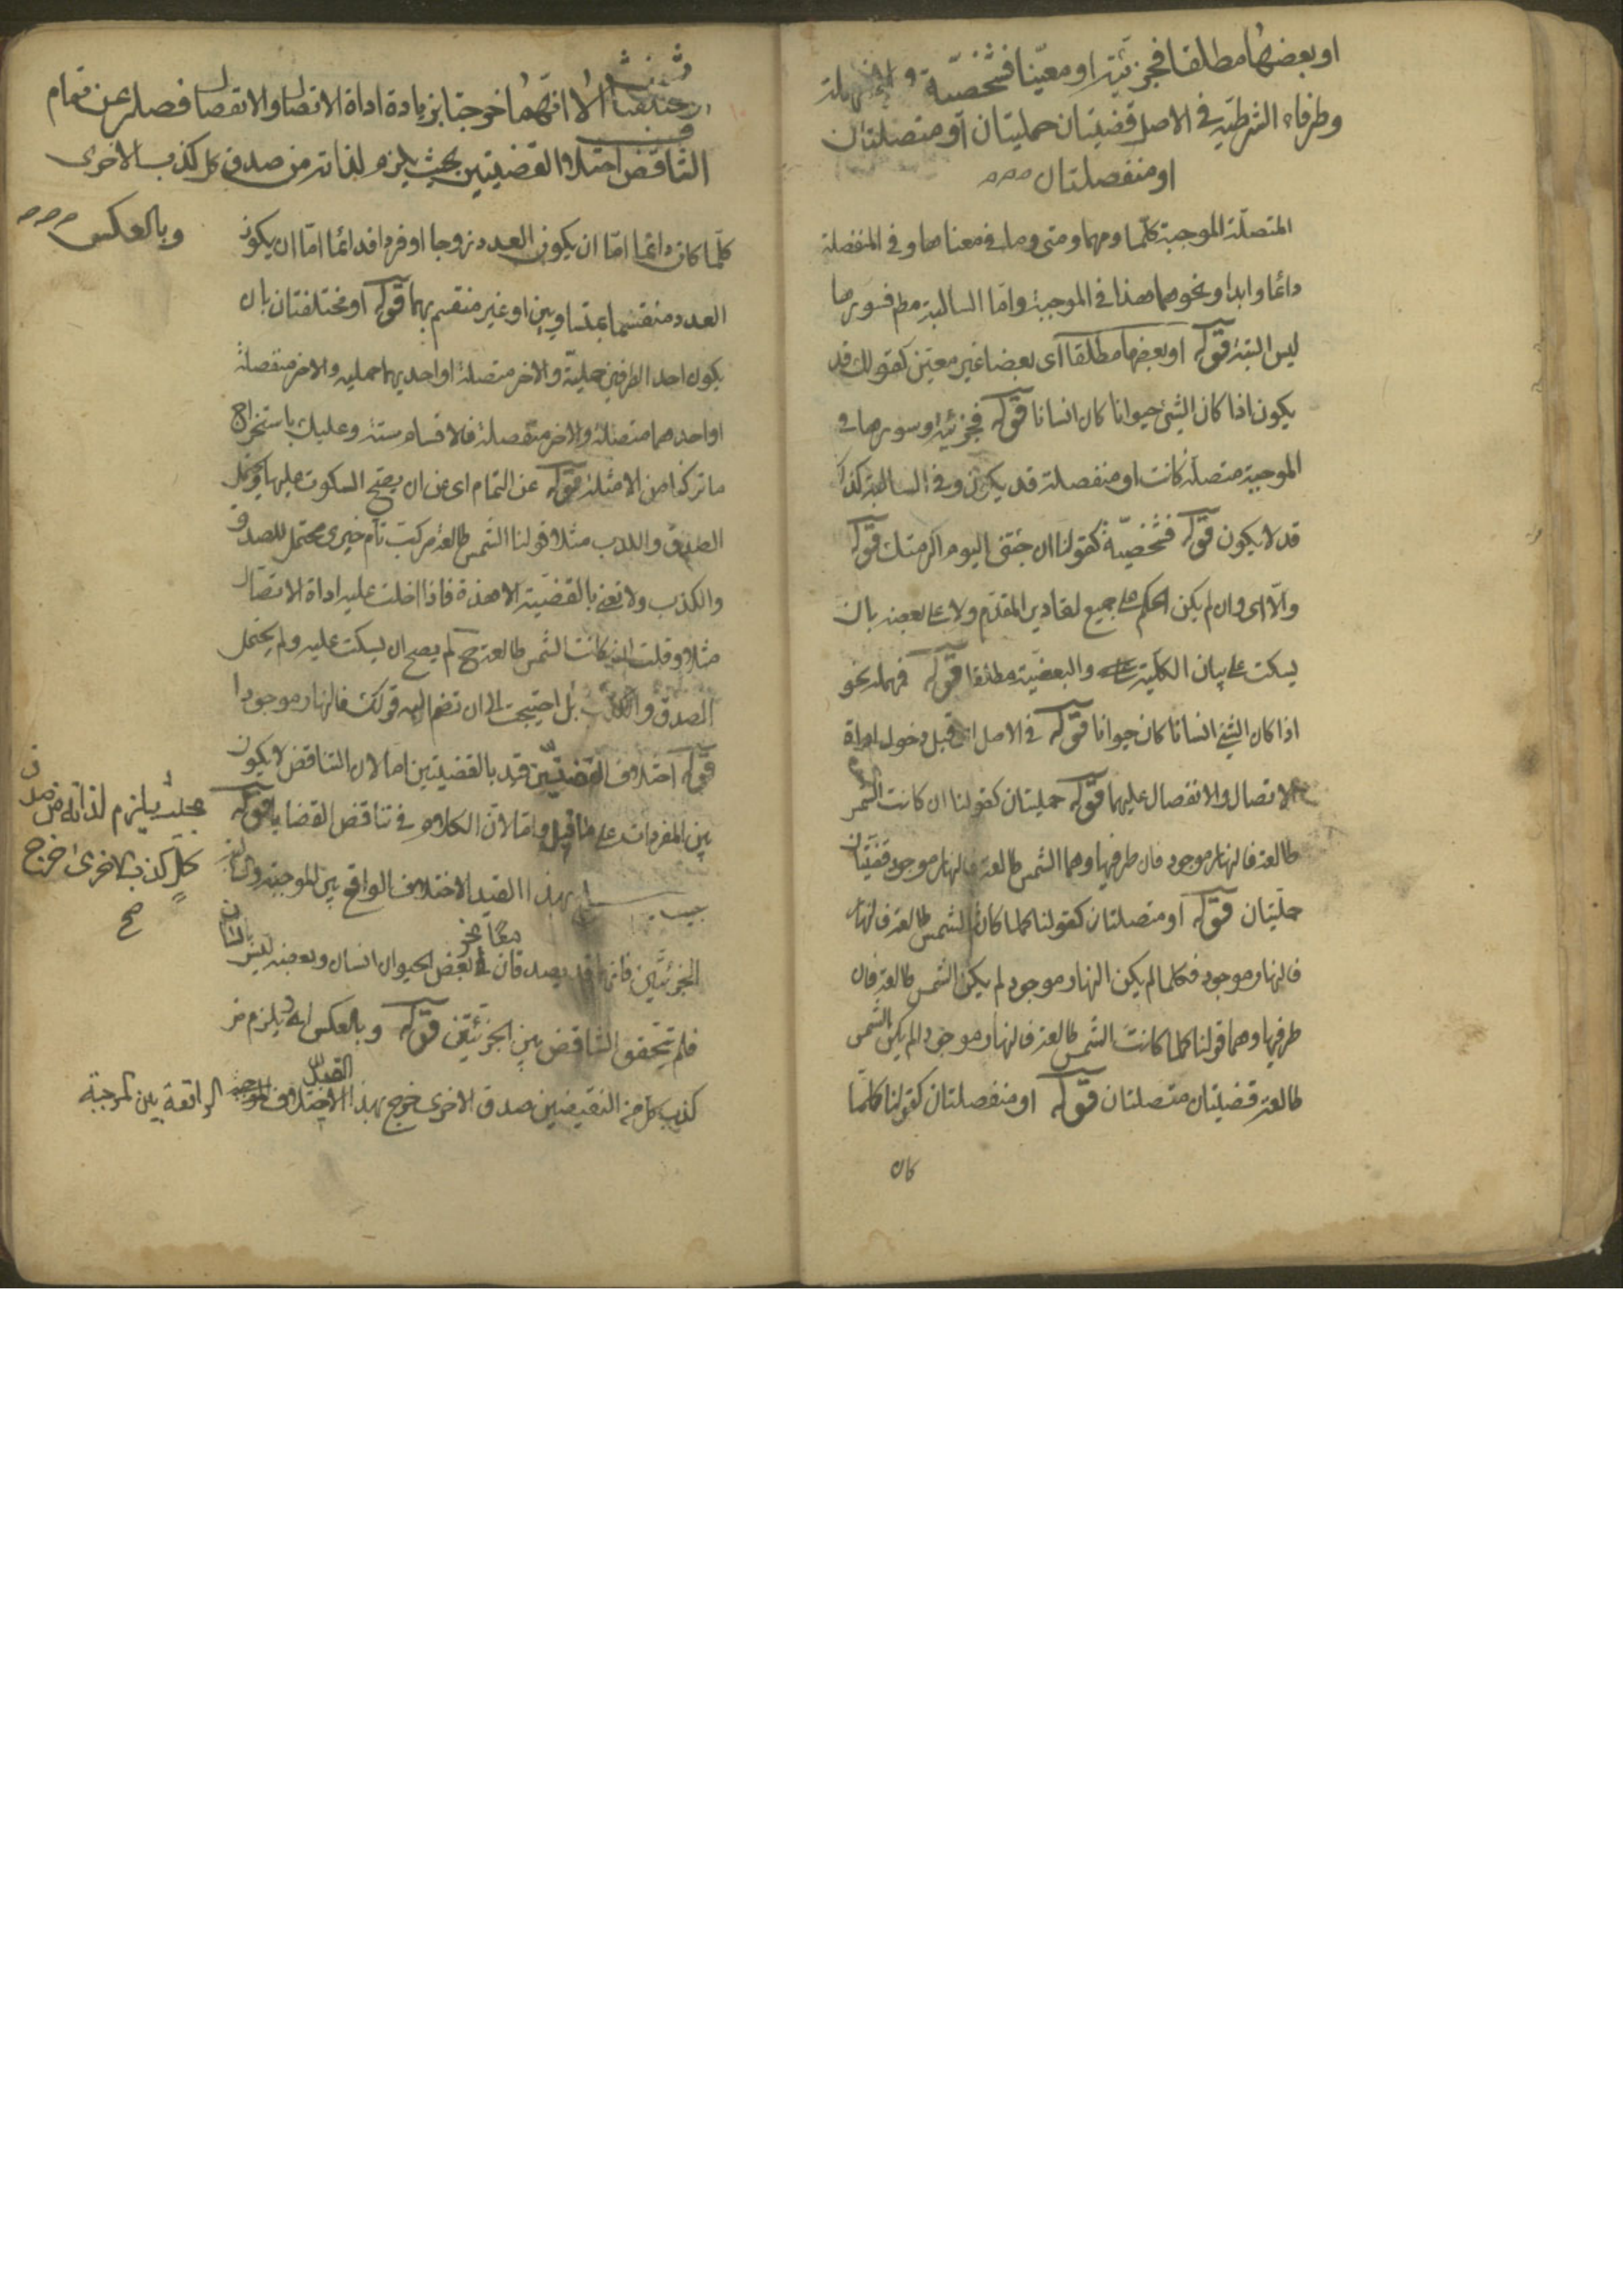 او بعضها مطلقا فجزئية او معينا فشخصية و
وطرفا الشرطية في الاصل قضيتان حمليتان او متصلتان
او منفصلتان
المتصلة الموجبة كلما ومهما ومتى وما في معناها وفي المنفصلة
دائما وابدا ونحوهما هذا في الموجبة واما السالبة مطم فسورها
ليس البتة قوله او بعضها مطلقا اى بعضا غير معين كقولك قد
يكون اذا كان الشئ حيوانا كان انسانا قوله فجزئية وسورها في
الموجبة متصلة كانت او منفصلة قد يكون وفي السالبة كذلك
قد لا يكون قوله فشخصية كقولنا ان جئتني اليوم اكرمتك قوله
والا اى وان لم يكن الحكم على جميع تقادير المقدم ولا على بعضه بان
يسكت عن بيان الكلية والبعضية مطلقا قوله فمهملة نحو
اذا كان الشئ انسانا كان حيوانا قوله في الاصل اى قبل دخول اداة
الاتصال والانفصال عليهما قوله حمليتان كقولنا ان كانت الشمس
طالعة فالنهار موجود فان طرفيها وهما الشمس طالعة والنهار موجود قضيتان
حمليتان قوله او متصلتان كقولنا كلما كان الشمس طالعة فالنهار
فالنهار موجود فكلما لم يكن النهار موجود لم يكن الشمس طالعة فان
طرفيها وهما قولنا كلما كانت الشمس طالعة فالنهار موجود لم يكن الشمس
طالعة قضيتان متصلتان قوله او منفصلتان كقولنا كلما
كان
الا انهما خرجتا بزيادة اداة الاتصال والانفصال فصل عن تمام
التناقض اختلاف القضيتين بحيث يلزم لذاته من صدق كل كذب الاخرى
وبالعكس
كلما كان دائما اما ان يكون العدد زوجا او فردا فدائما اما ان يكون
العدد منقسما بمتساويين او غير منقسم بهما قوله او مختلفتان بان
يكون احد الطرفين حملية والاخر متصلة او احديهما حملية والاخر منفصلة
او احدهما متصلة والاخر منفصلة فالاقسام ستة وعليك باستخراج
ما تركنا من الامثلة قوله عن التمام اى عن ان يصح السكوت عليهما ويحتمل
الصدق والكذب مثلا قولنا الشمس طالعة مركب تام خبرى محتمل للصدق
والكذب ولا نعني بالقضية الا هذه فاذا ادخلت عليه اداة الاتصال
مثلا وقلت ان كانت الشمس طالعة ح لم يصح ان يسكت عليه ولم يحتمل
الصدق والكذب بل احتجت الى ان تضم اليه قولك فالنهار موجودا
قوله اختلاف القضيتين قيد بالقضيتين اما لان التناقض لا يكون
بين المفردات على ما قيل واما لان الكلام في تناقض القضايا قوله
بحيث يلزم لذاته من صدق
كل كذب الاخرى خرج
صح
بهذا القيد الاختلاف الواقع بين الموجبة والسالبة
الجزئيتين فانهما قد يصدقان معا نحو بعض الحيوان انسان وبعضه ليس بانسان
فلم يتحقق التناقض بين الجزئيتين قوله وبالعكس اى يلزم من
كذب كل من النقيضين صدق الاخرى خرج بهذا القيد الاختلاف الواقعة بين الموجبة